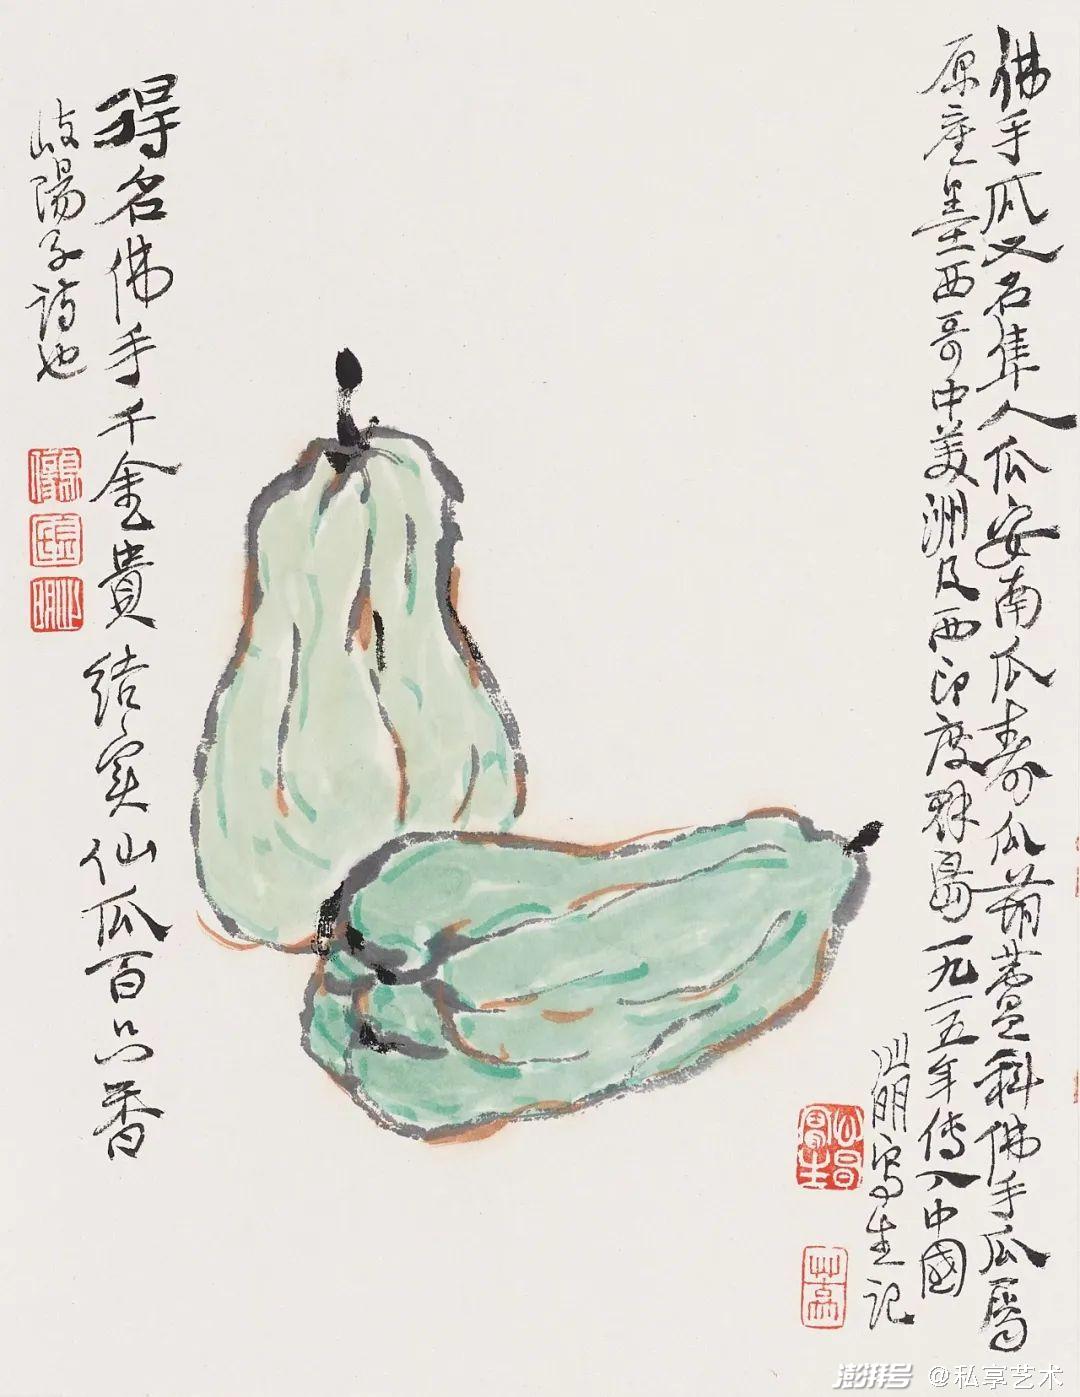 佛手瓜又名隼人瓜安南瓜寿瓜葫蘆科佛手瓜属
原産墨西哥中美洲及西印度群島一九一五年傳入中國
川明写生記
得名佛手千金貴結實仙瓜百品香
岐陽子詩也
澎湃号 @私享艺术